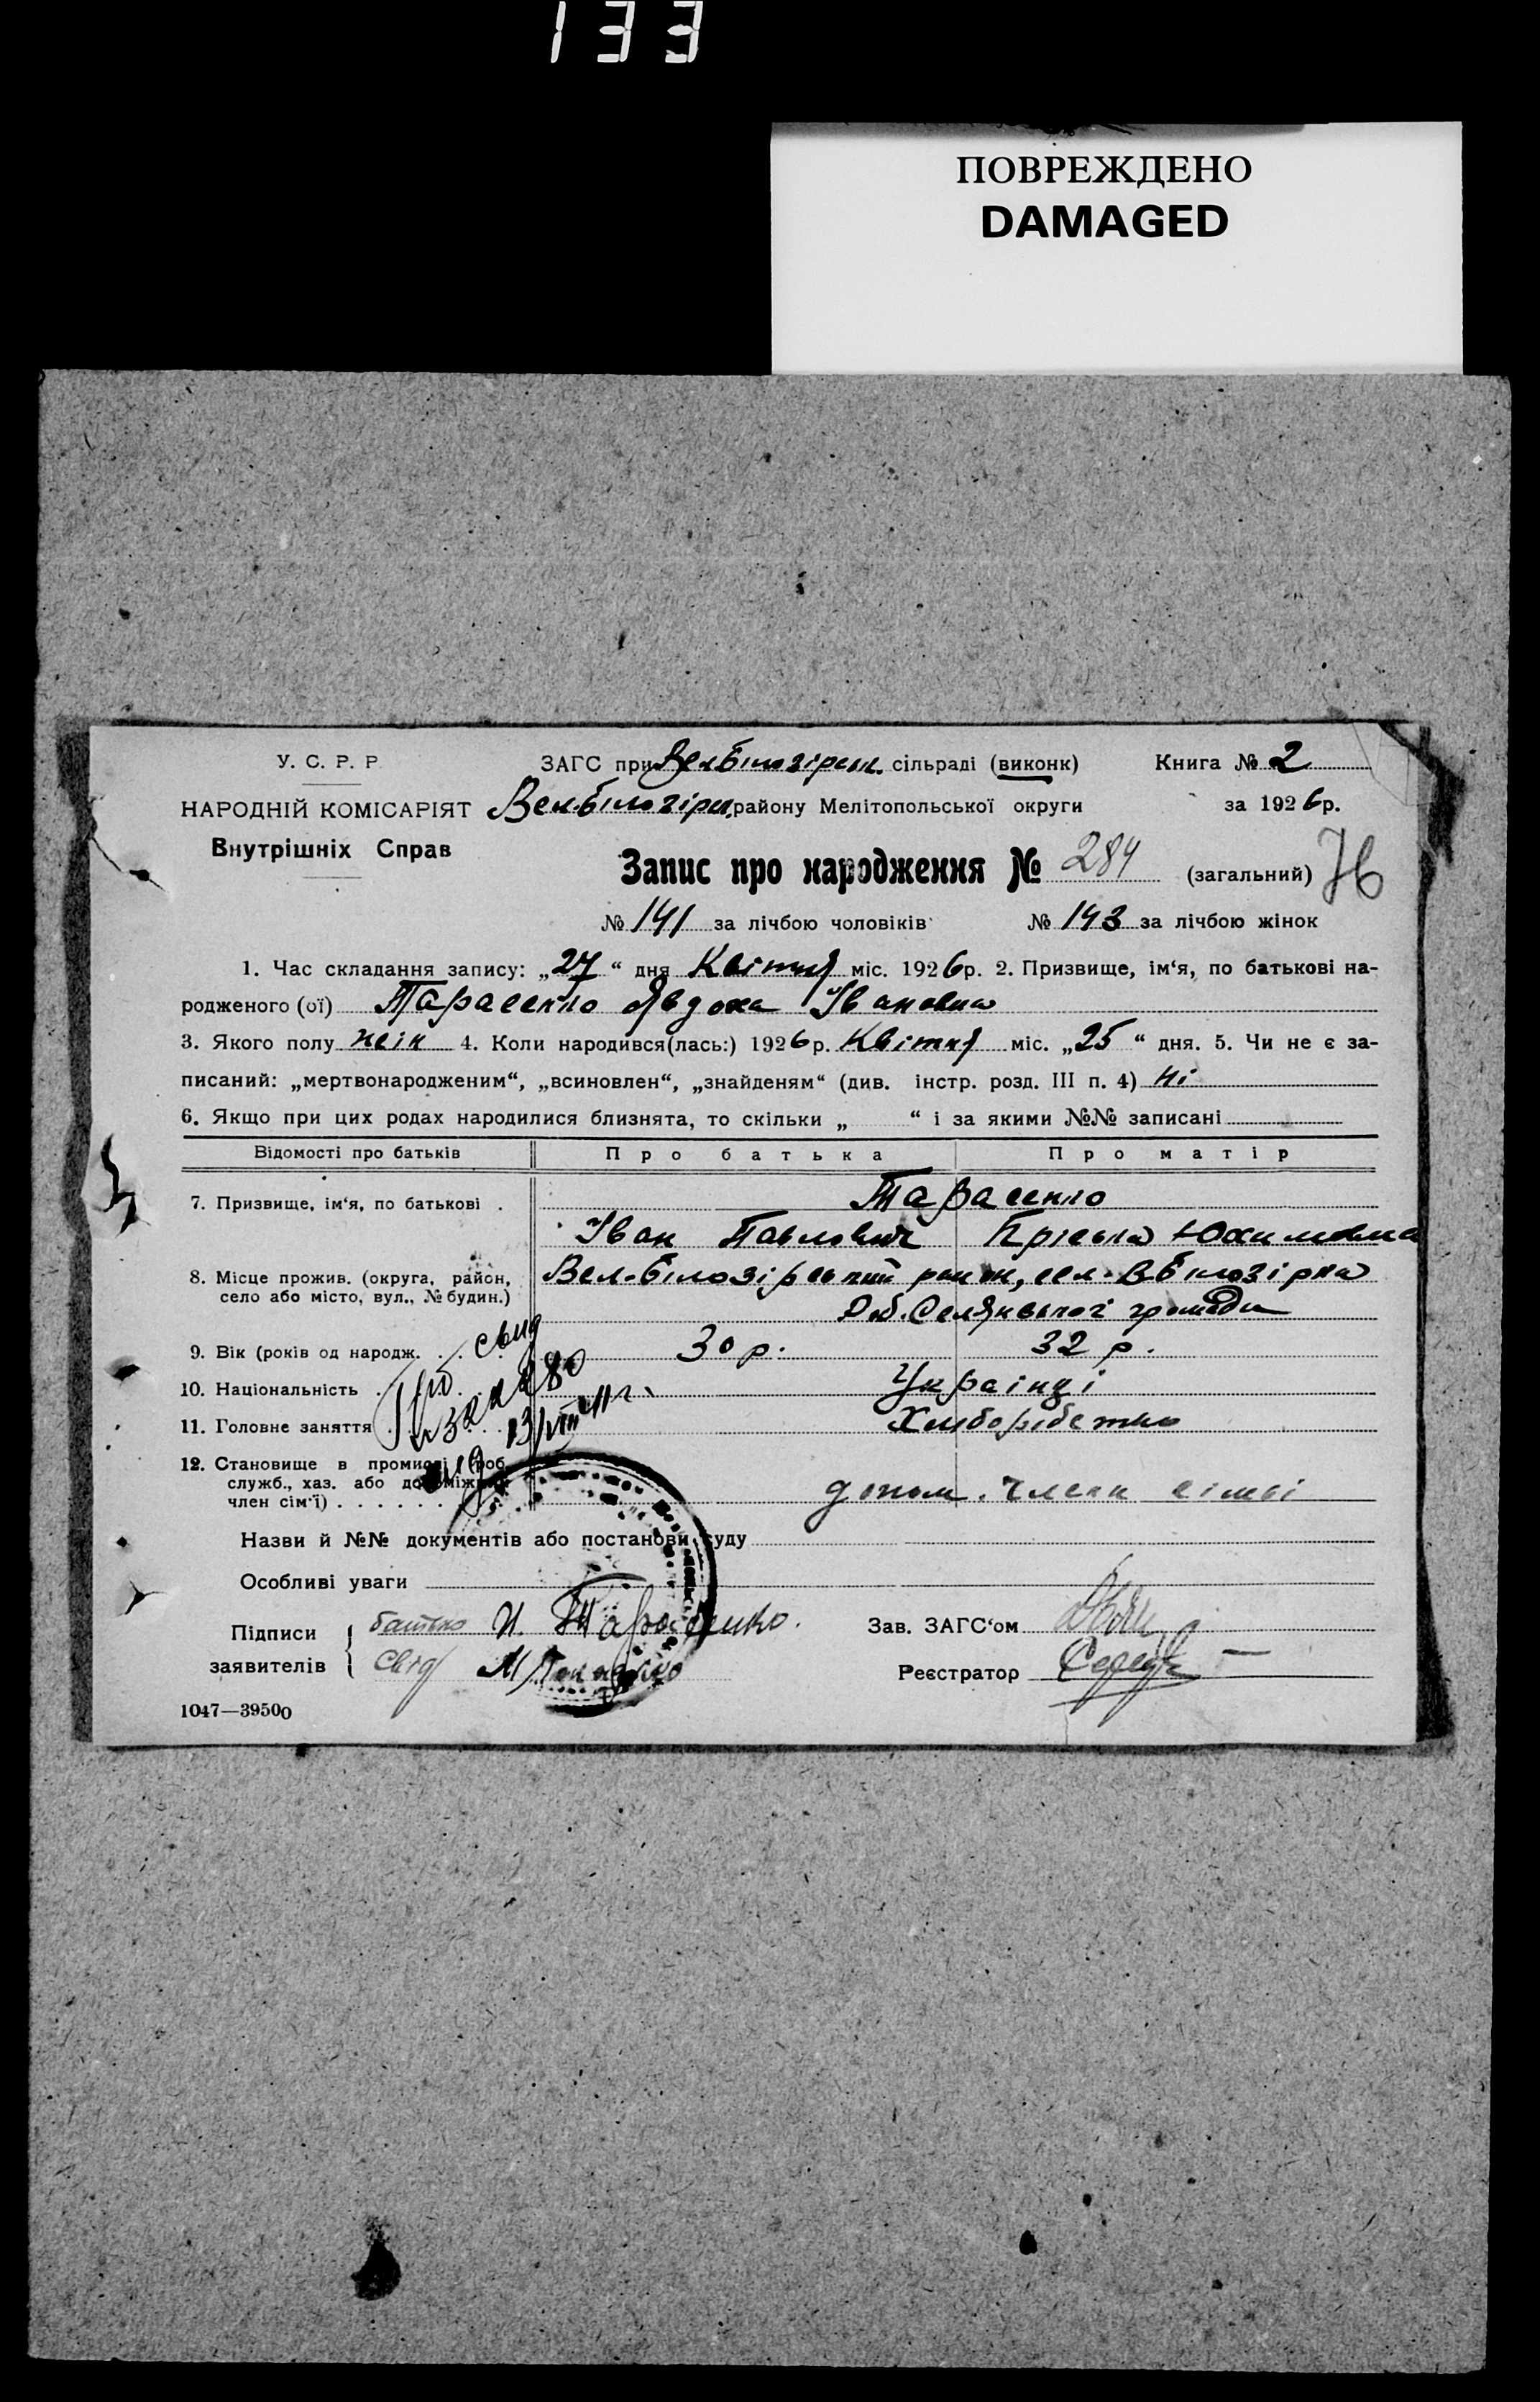 133
ПОВРЕЖДЕНО
DAMAGED
У. С. Р. Р. ЗАГС при Вел білозірськ. сільраді (виконк) Книга № 2
НАРОДНІЙ КОМІСАРІЯТ Вел-білозірськ. району Мелітопольської округи за 1926 р.
Внутрішніх Справ
Запис про народження № 284 (загальний) 76
№ 141 за лічбою чоловіків № 143 за лічбою жінок
1. Час складання запису: „27“ дня Квітня міс. 1926 р. 2. Призвище, ім‘я, по батькові на-
родженого (ої) Тарасенко Явдоха Івановна
3. Якого полу жін 4. Коли народився(лась:) 1926 р. Квітня міс. „25“ дня. 5. Чи не є за-
писаний: „мертвонародженим“, „всиновлен“, „знайденям“ (див. інстр. розд. III п. 4) Ні
6. Якщо при цих родах народилися близнята, то скільки „ “ і за якими №№ записані
Відомості про батьків Про батька Про матір
7. Призвище, ім‘я, по батькові . Тарасенко
Іван Павлович Пріська Юхимовна
8. Місце прожив. (округа, район, Вел-білозірський район, сел. В білозірка
село або місто, вул., № будин.) Селянської громади
9. Вік (років од народж. . . 30 р. 32 р.
10. Національність . Українці
11. Головне заняття Хліборобство
12. Становище в промислі (роб.
служб., хаз. або допоміжний
член сім‘ї) . . . . . . допом. члени сімьі
Назви й №№ документів або постанови суду
Особливі уваги
Підписи батько И. Тарасенко. Зав. ЗАГС‘ом
заявителів Свід М Реєстратор
1047—39500